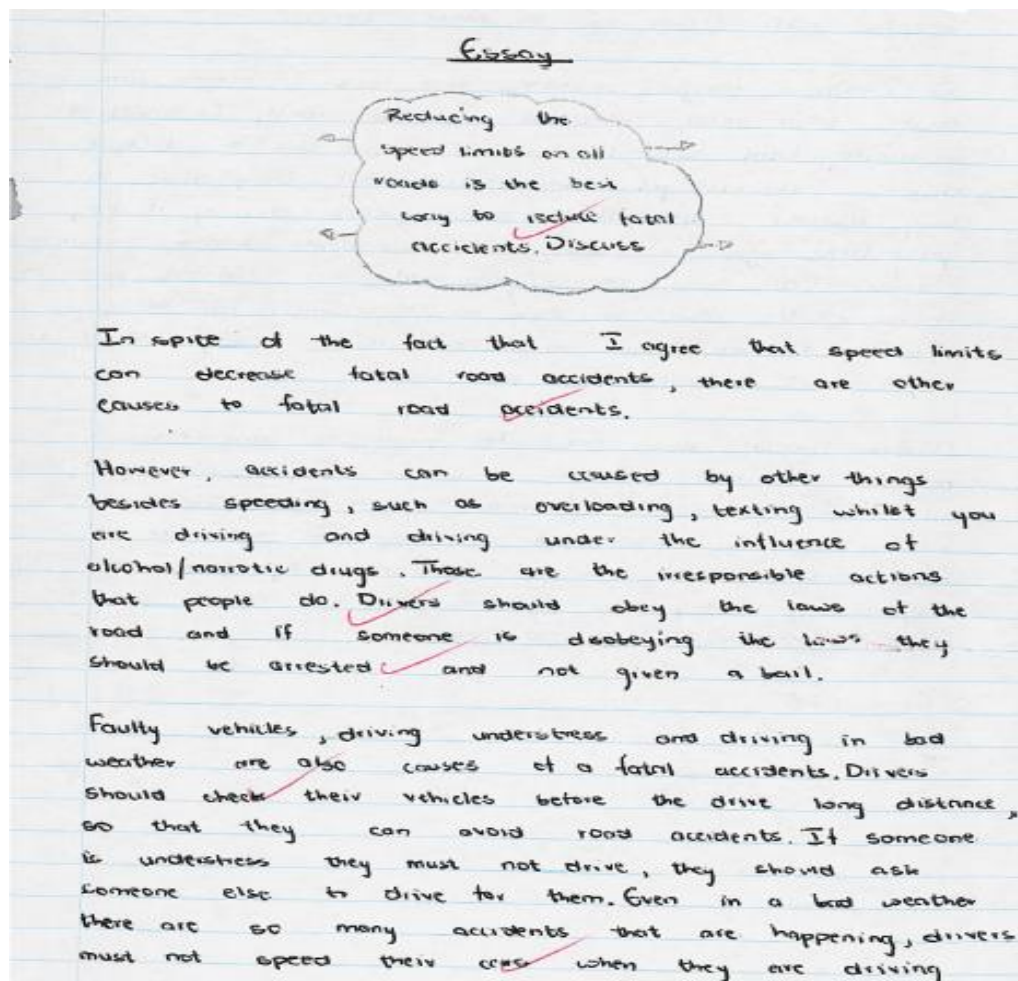 Essay
Reducing the
speed limits on all
roads is the best
way to fatal
accidents. Discuss
In spite of the fact that I agree that speed limits
can decrease fatal road accidents, there are other
causes to fatal road accidents.
However, accidents can be caused by other things
besides speeding, such as overloading, texting whilst you
are driving and driving under the influence of
alcohol/narcotic drugs. Those are the irresponsible actions
that people do. Drivers should obey the laws of the
road and if someone is disobeying the laws they
should be arrested and not given a bail.
Faulty vehicles, driving understress and driving in bad
weather are also causes of a fatal accidents. Drivers
should check their vehicles before the drive long distance,
so that they can avoid road accidents. If someone
is understress they must not drive, they should ask
someone else to drive for them. Even in a bad weather
there are so many accidents that are happening, drivers
must not speed their when they are driving